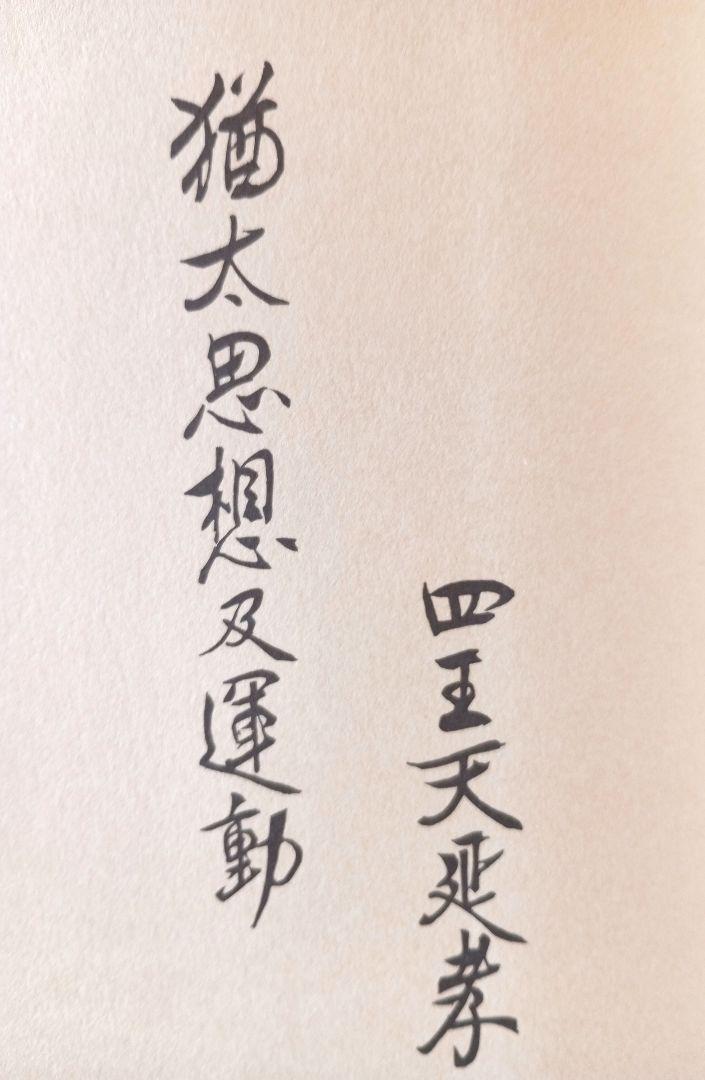 四王天延孝
猶太思想及運動